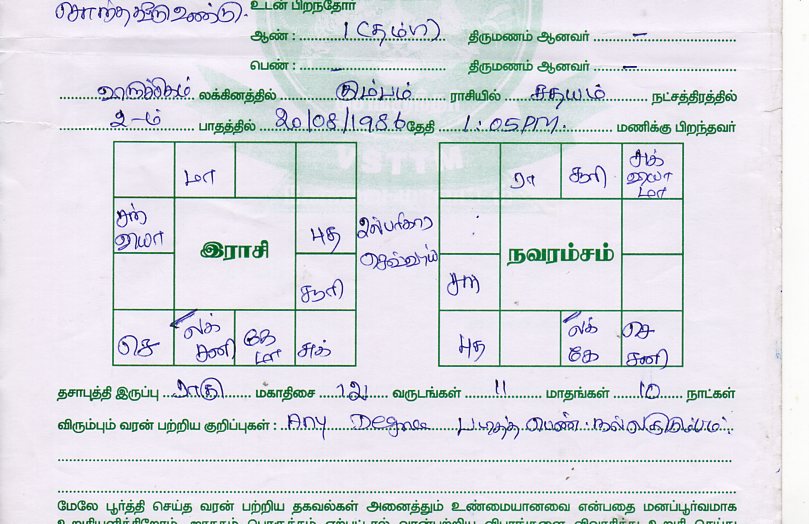 சொந்தவீடு உண்டு.
உடன் பிறந்தோர்
ஆண் : 1 (தம்பி) திருமணம் ஆனவர் –
பெண் : திருமணம் ஆனவர் –
லக்கினத்தில் கும்பம் ராசியில் சதயம் நட்சத்திரத்தில்
2-ம் பாதத்தில் 20/08/1986 தேதி 1:05 PM. மணிக்கு பிறந்தவர்
மா
ரா
சனி
சுக்
புத
செவ்வாய்
இராசி
நவரம்சம்
செ
லக்
சனி
கே
சுக்
புத
லக்
கே
செ
சனி
தசாபுத்தி இருப்பு ராகு மகாதிசை 12 வருடங்கள் 11 மாதங்கள் 10 நாட்கள்
விரும்பும் வரன் பற்றிய குறிப்புகள் : Any Degree படித்த பெண். நல்ல குடும்பம்.
மேலே பூர்த்தி செய்த வரன் பற்றிய தகவல்கள் அனைத்தும் உண்மையானவை என்பதை மனப்பூர்வமாக